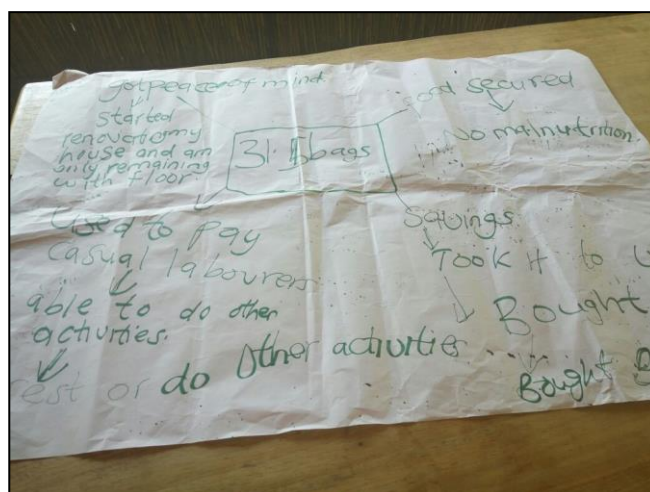 got peace of mind.
started
renovating my
house and am
only remaining
with floor
31.5 bags
food secured
No malnutrition.
Used to pay
casual labourers
able to do other
activities.
rest or do
Other activities
Savings
Took it to
Bought
Bought